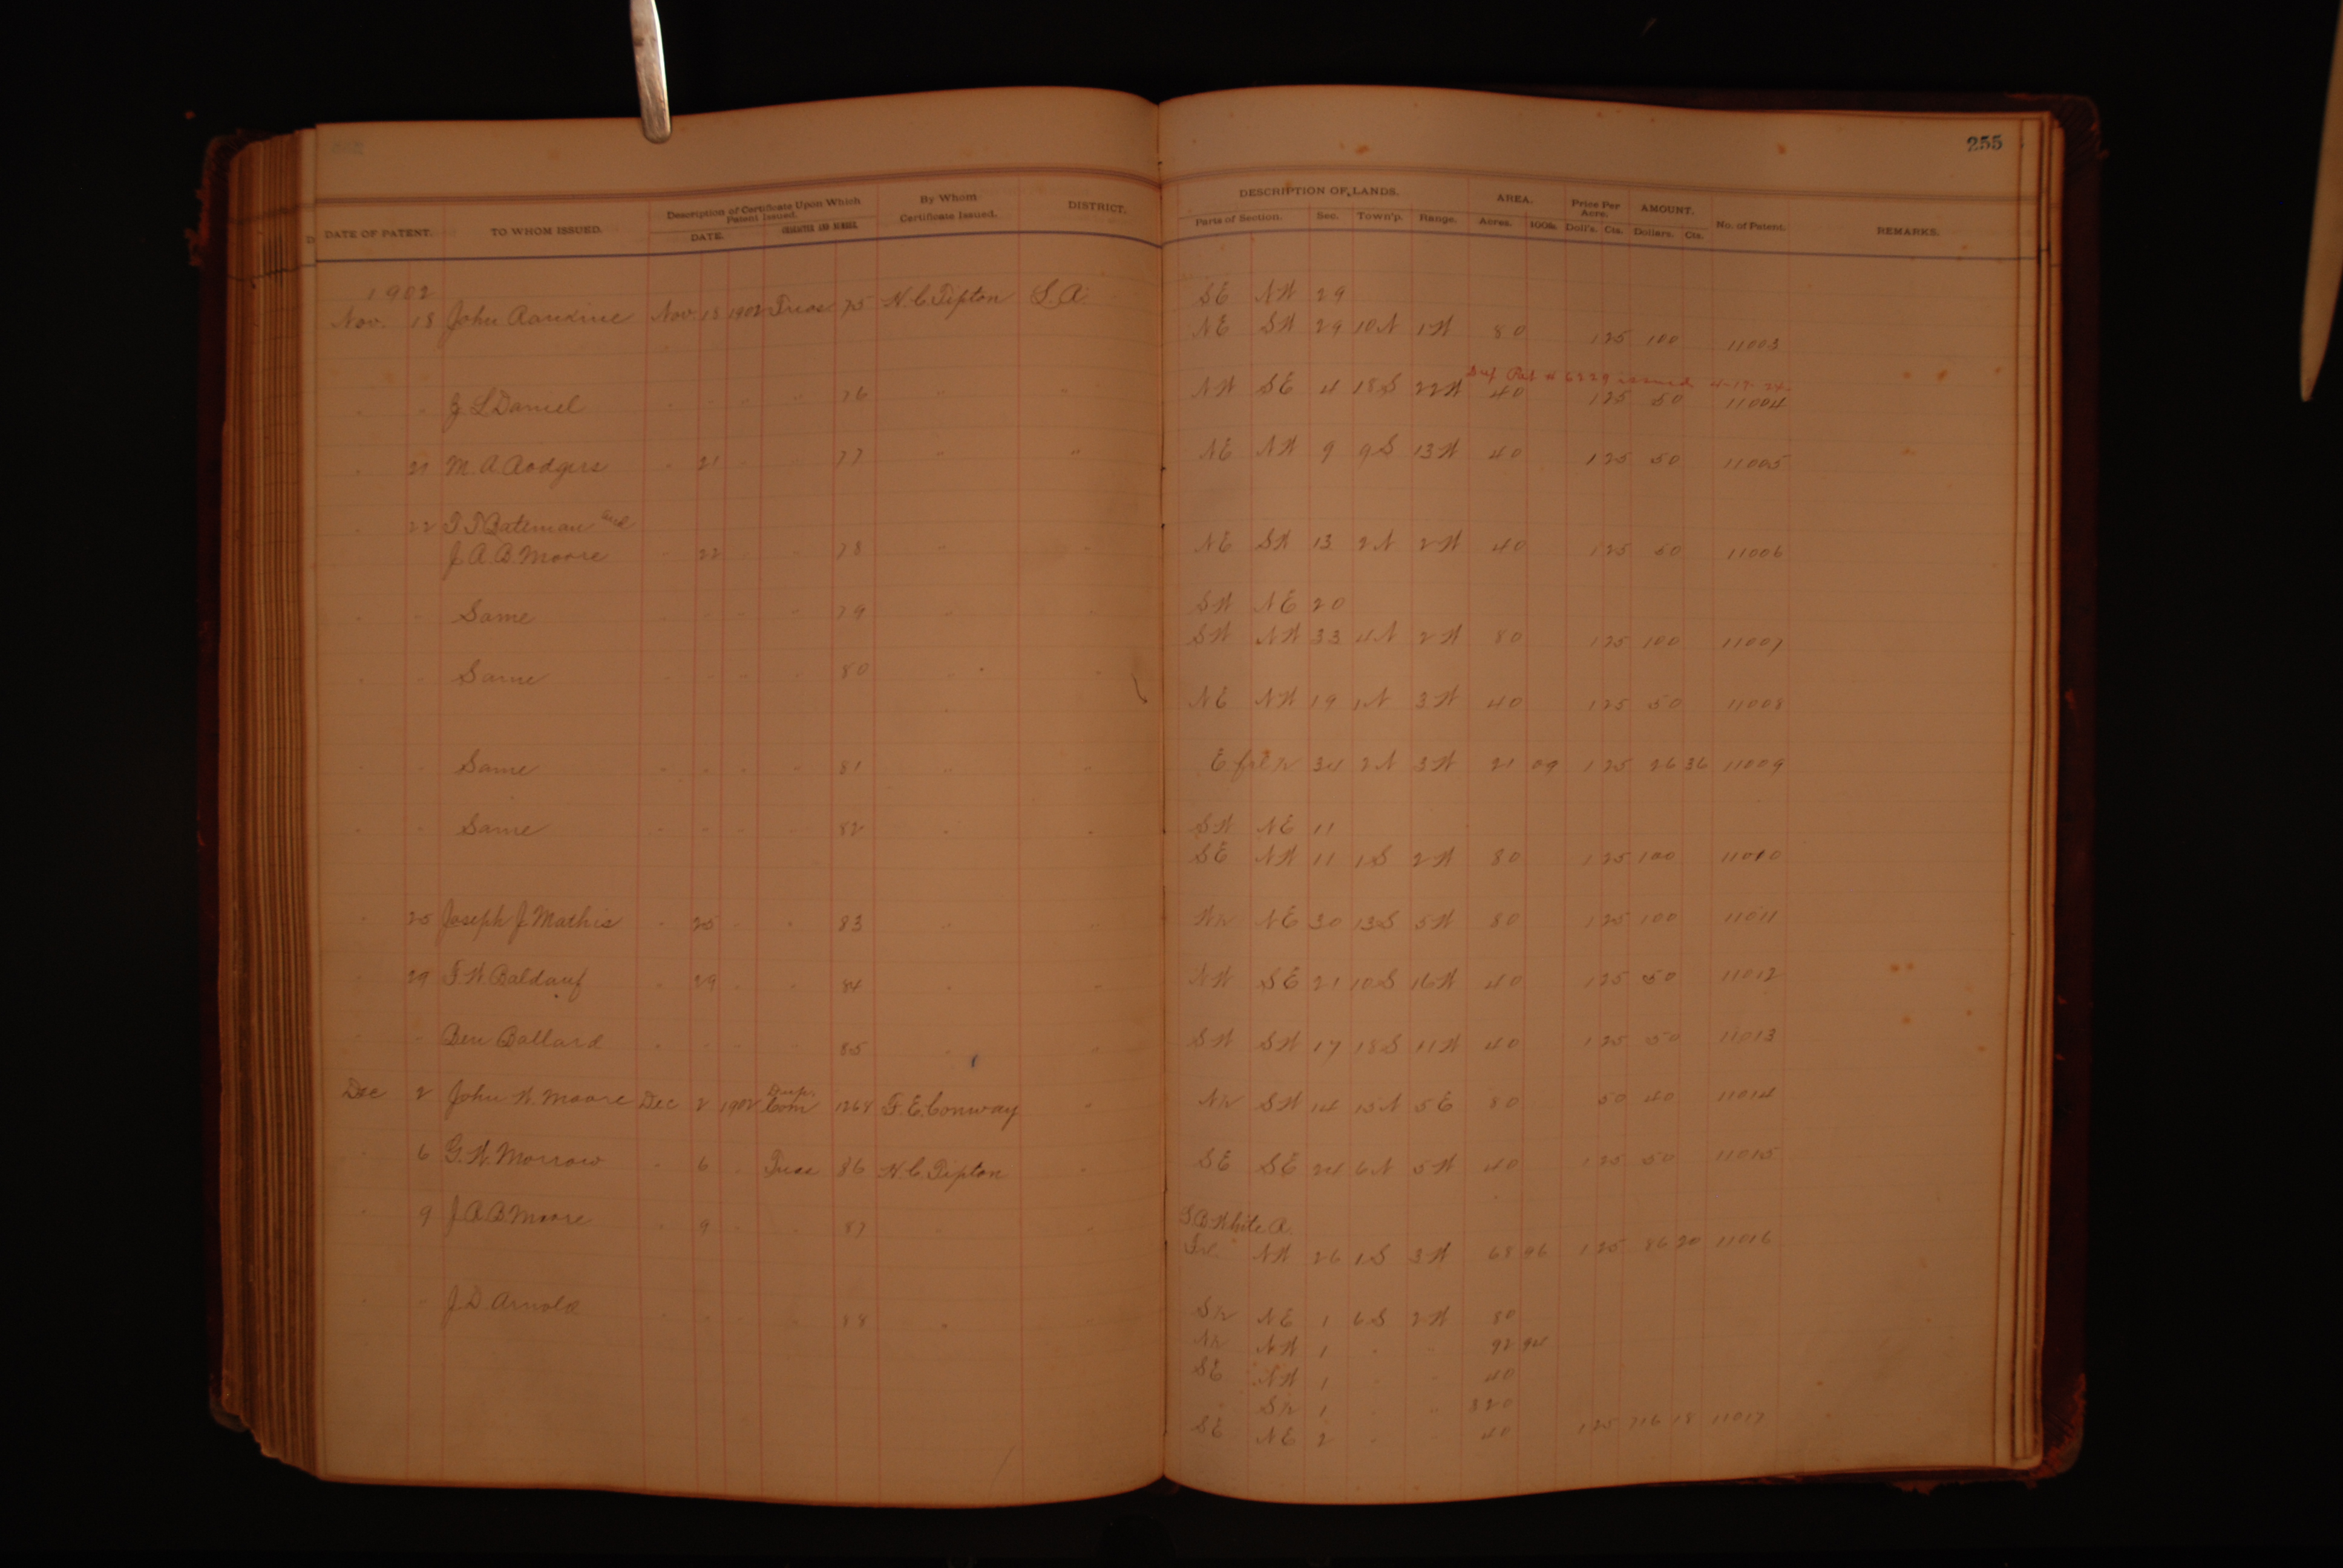 255
DATE OF PATENT. TO WHOM ISSUED. Description of Certificate Upon Which Patent Issued. DATE. CHARACTER AND NUMBER. By Whom Certificate Issued. DISTRICT. DESCRIPTION OF LANDS. Parts of Section. Sec. Town'p. Range. AREA. Acres. 100ths Price Per Acre. Doll's. Cts. AMOUNT. Dollars. Cts. No. of Patent. REMARKS.
1902 SE NW 29
Nov. 18 John Nov. 18 1902 75 H. C. Tipton NE SW 29 10N 1W 80 1 25 100 11003
Pat # 6229 issued 4-17-24
" " J L Daniel " " " " 76 " " NW SE 4 18S 22W 40 1 25 50 11004
" 21 M. A. Rodgers " 21 " " 77 " " NE NW 9 9S 13W 40 1 25 50 11005
" 22 T T Bateman and
J. A. B. Moore " 22 " " 78 " " NE SW 13 2N 2W 40 1 25 50 11006
" " Same " " " " 79 " " SW NE 20
SW NW 33 4N 2W 80 1 25 100 11007
" " Same " " " " 80 " "
NE NW 19 1N 3W 40 1 25 50 11008
" " Same " " " " 81 " " E frl ½ 34 2N 3W 21 09 1 25 26 36 11009
" " Same " " " " 82 " " SW NE 11
SE NW 11 1S 2W 80 1 25 100 11010
" 25 Joseph J Mathis " 25 " " 83 " " W½ NE 30 13S 5W 80 1 25 100 11011
" 29 F. W. Baldauf " 29 " " 84 " " NW SE 21 10S 16W 40 1 25 50 11012
" " Ben Ballard " " " " 85 " " SW SW 17 18S 11W 40 1 25 50 11013
Dec 2 John W. Moore Dec 2 1902 Dup. Com 1268 F. E. Conway " N½ SW 14 15N 5E 80 50 40 11014
" 6 G. W. Morrow " 6 " 86 H. C. Tipton " SE SE 24 6N 5W 40 1 25 50 11015
" 9 J A B Moore " 9 " " 87 " " White R.
Frl. NW 26 1S 3W 68 96 1 25 86 20 11016
" " J. D. Arnold " " " " 88 " " S½ NE 1 6S 2W 80
N½ NW 1 " " 92 94
SE NW 1 " " 40
S½ 1 " " 320
SE NE 2 " " 40 1 25 716 18 11017